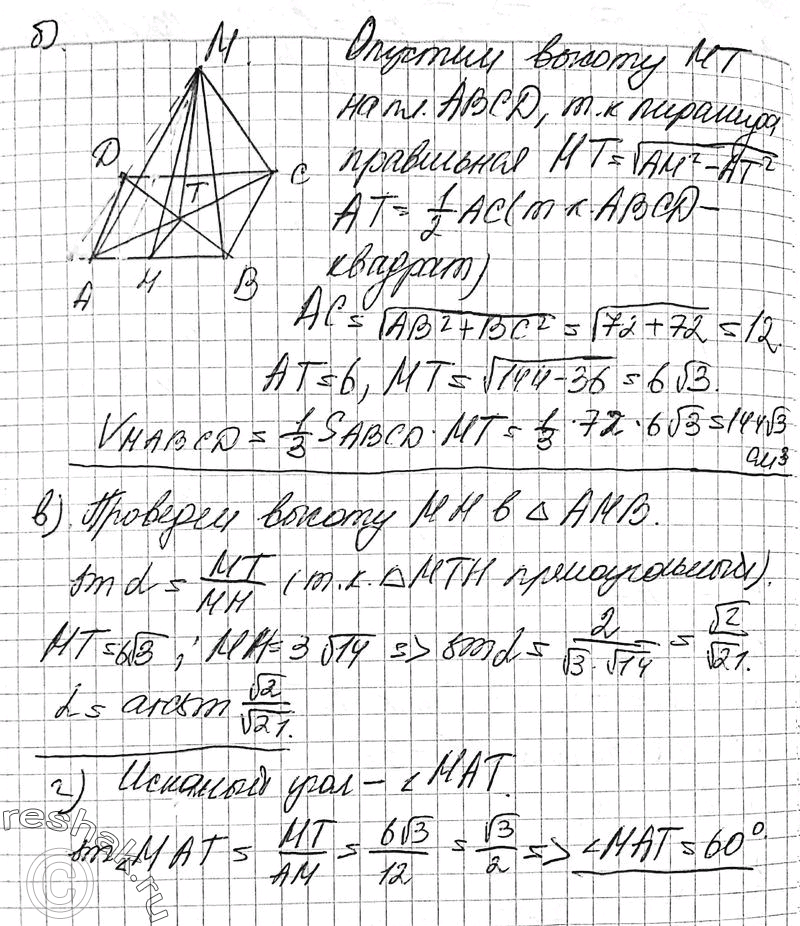 б).
M
D
C
T
A
H
B
Опустим высоту MT
на пл. ABCD, т.к пирамида
правильная MT = √(AM² - AT²)
AT = 1/2 AC (т к. ABCD -
квадрат)
AC = √(AB² + BC²) = √(72 + 72) = 12.
AT = 6, MT = √(144 - 36) = 6√3.
V MABCD = 1/3 S ABCD · MT = 1/3 · 72 · 6√3 = 144√3
см³
в) Проведем высоту MH в △ AMB.
sin α = MT/MH (т.к. △MTH прямоугольный).
MT = 6√3; MH = 3√14 => sin α = 2/(√3·√14) = √2/√21.
α = arcsin √2/√21.
г) Искомый угол - ∠MAT.
sin∠MAT = MT/AM = 6√3/12 = √3/2 => ∠MAT = 60°
reshak.ru
©